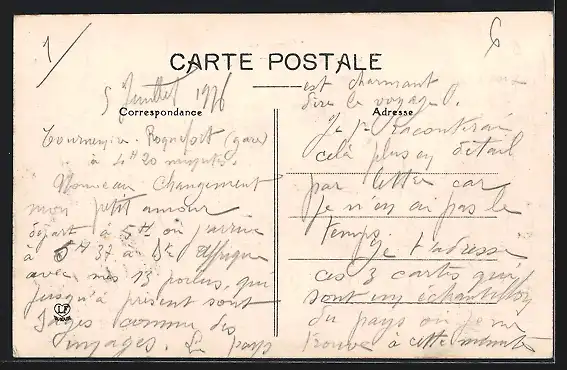 1/
6
CARTE POSTALE
Correspondance
Adresse
5 Juillet 1916
Tournemire-Roquefort (gare)
à 4H 20 minutes.
Nouveau changement
mon petit amour
départ à 5H où j'arrive
à 5H 37 à St Affrique
avec mes 13 poilus, qui
jusqu'à présent sont
sages comme des
images. Le pays
est charmant
dire le voyage.
Je te raconterai
celà plus en détail
par lettre car
je n'en ai pas le
temps.
Je t'adresse
ces 3 cartes qui
sont un échantillon
du pays où je me
trouve à cette minute
LF